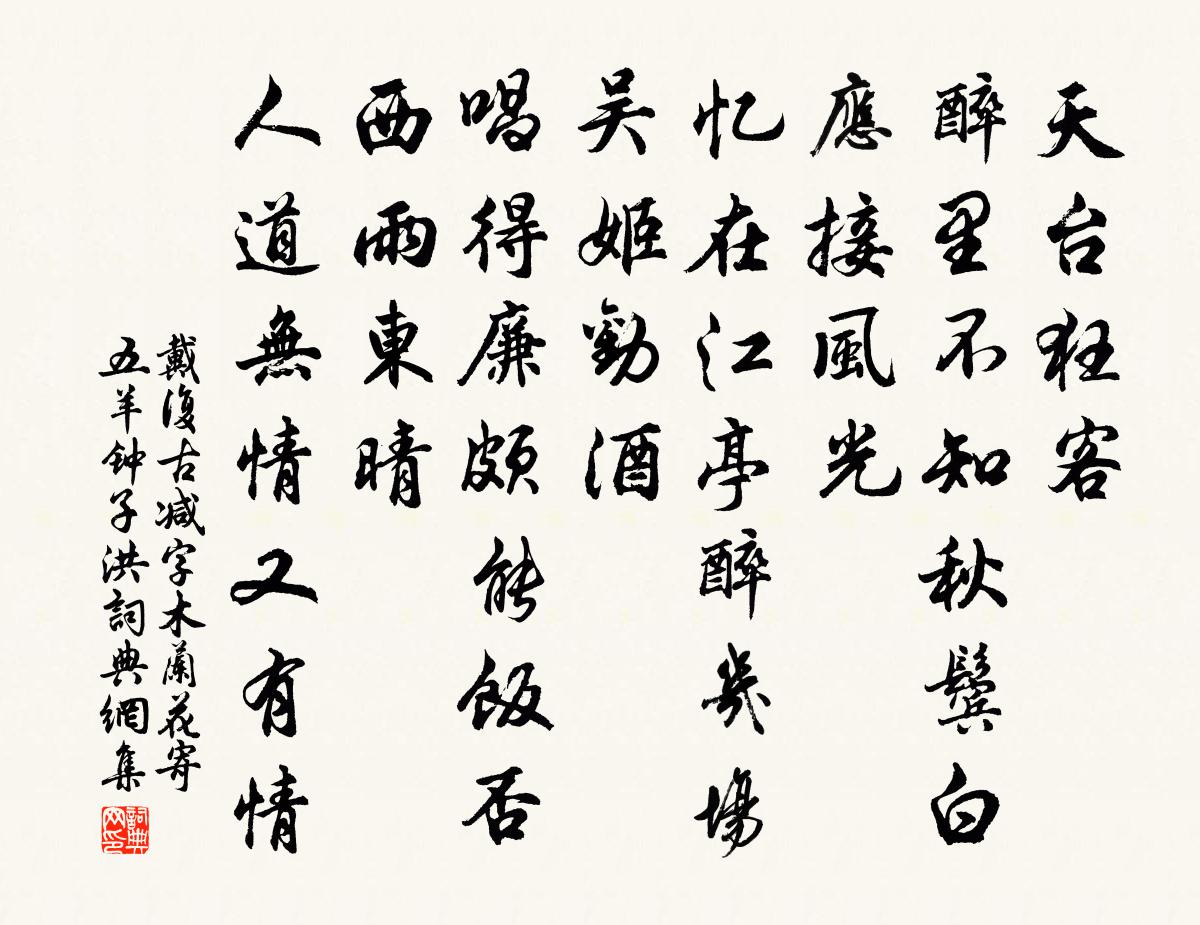 天台狂客
醉里不知秋鬓白
應接風光
忆在江亭醉幾場
吴姬勸酒
唱得廉颇能飯否
西雨東晴
人道無情又有情
戴復古减字木蘭花寄
五羊钟子洪詞典網集
詞典
网印